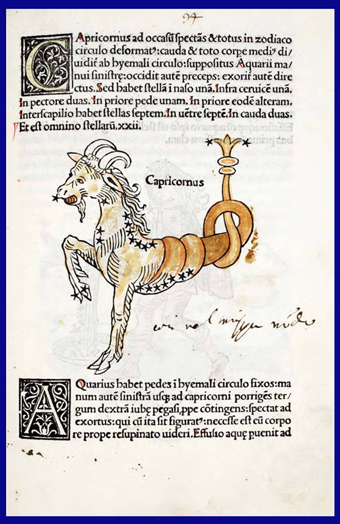 94
CApricornus ad occasũ spectãs & totus in zodiaco
circulo deformatꝰ: cauda & toto corpe mediꝰ di/
uidiẽ ab hyemali circulo: suppositus Aquarii ma/
nui sinistrę: occidit autẽ preceps: exorit autẽ dire
ctus. Sed habet stellã i naso unã. Infra ceruicẽ unã.
In pectore duas. In priore pede unam. In priore eodẽ alteram.
Interscapilio habet stellas septem. In uẽtre septẽ. In cauda duas.
Et est omnino stellarũ. xxii.
Capricornus
AQuarius habet pedes i hyemali circulo fixos: ma
num autẽ sinistrã usq; ad capricorni porriges ter/
gum dextrã iubę pegasi, ppe cõtingens: spectat ad
exortus: qui cũ ita sit figuratꝰ: necesse est eũ corpo
re prope resupinato uideri. Effusio aquę puenit ad